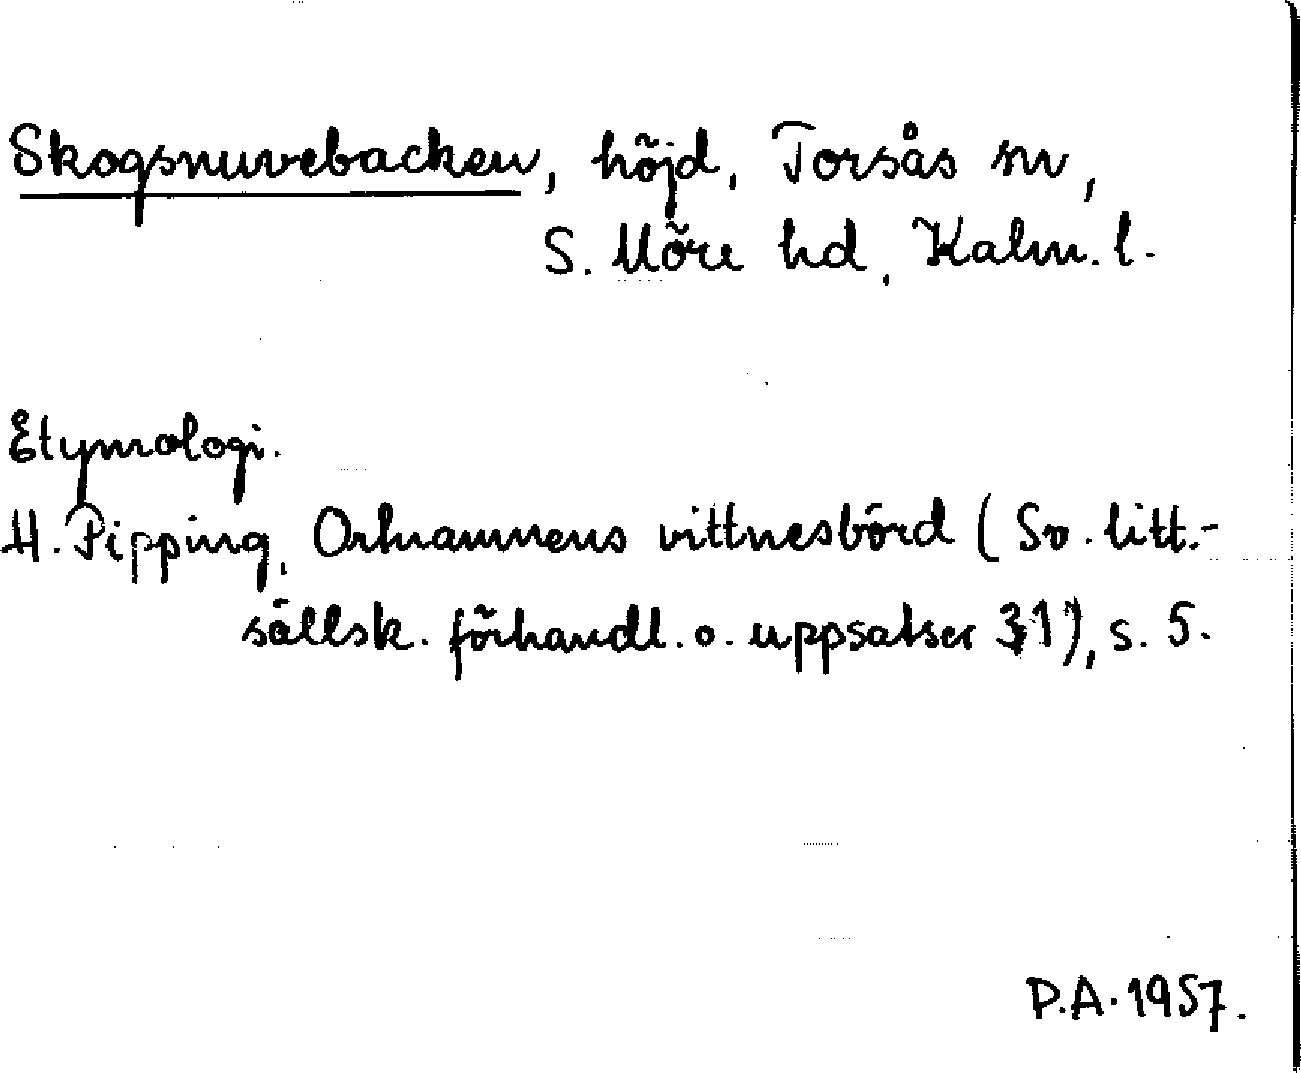 Skogsnuvebacken, höjd, Torsås sn,
S. Möre hd, Kalm. l.
Etymologi.
H. Pipping, Ortnamnens vittnesbörd (Sv. litt.-
sällsk. förhandl. o. uppsatser 31), s. 5.
P.A. 1957.